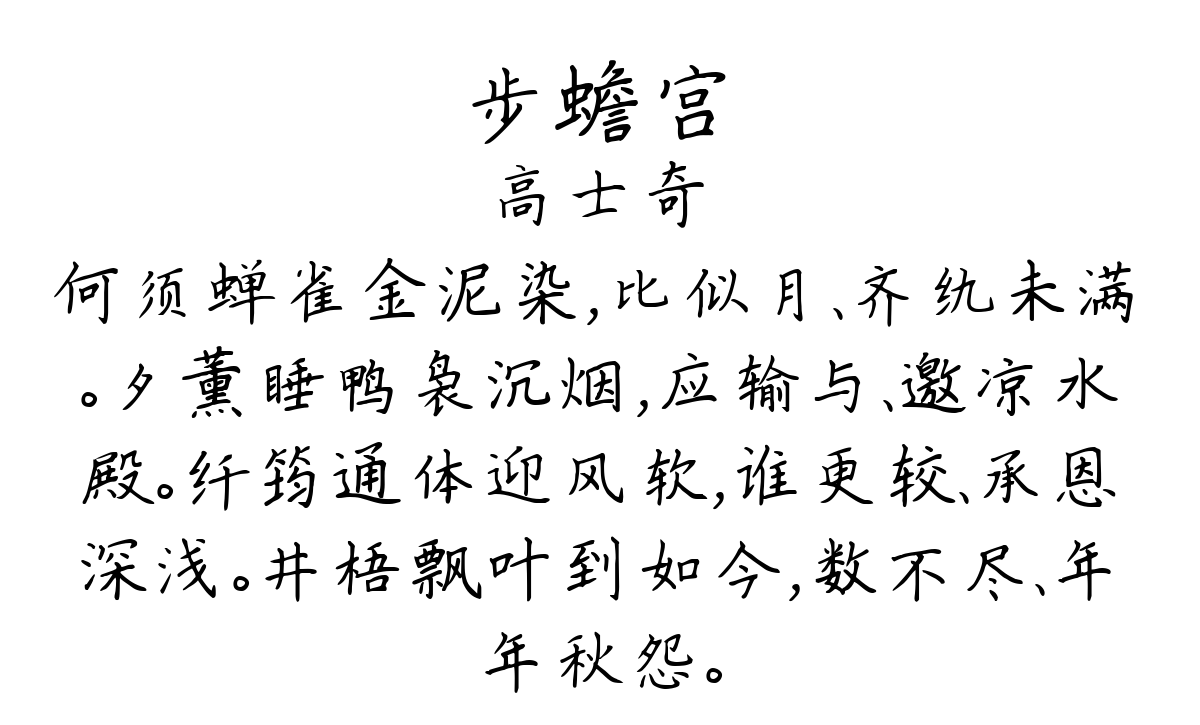 步蟾宫
高士奇
何须蝉雀金泥染,比似月、齐纨未满
。夕薰睡鸭袅沉烟,应输与、邀凉水
殿。纤筠通体迎风软,谁更较、承恩
深浅。井梧飘叶到如今,数不尽、年
年秋怨。